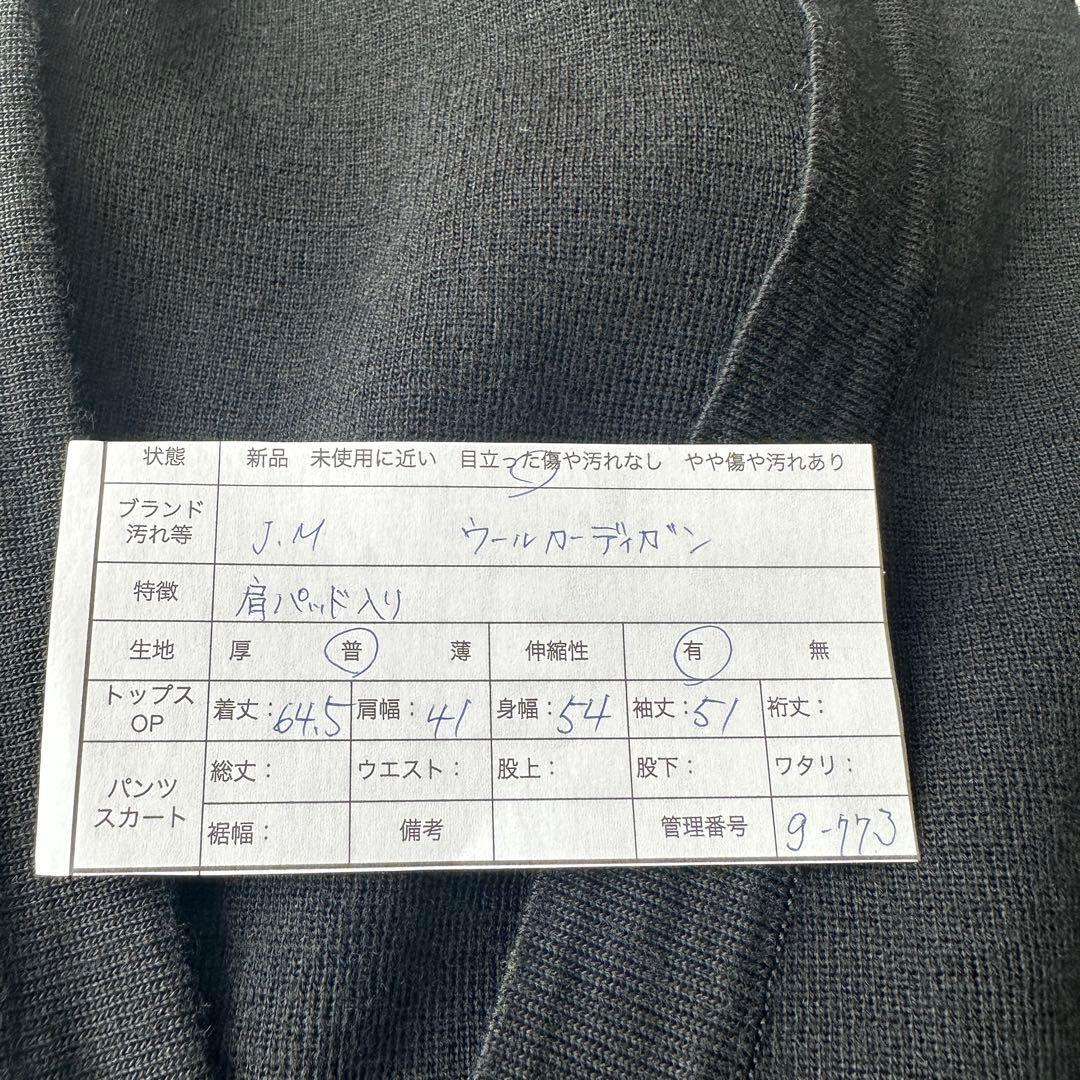 状態 新品 未使用に近い 目立った傷や汚れなし やや傷や汚れあり
ブランド
汚れ等 J.M ウールカーディガン
特徴 肩パッド入り
生地 厚 普 薄 伸縮性 有 無
トップス
OP 着丈:64.5 肩幅:41 身幅:54 袖丈:51 裄丈:
パンツ
スカート 総丈: ウエスト: 股上: 股下: ワタリ:
裾幅: 備考 管理番号 9-773